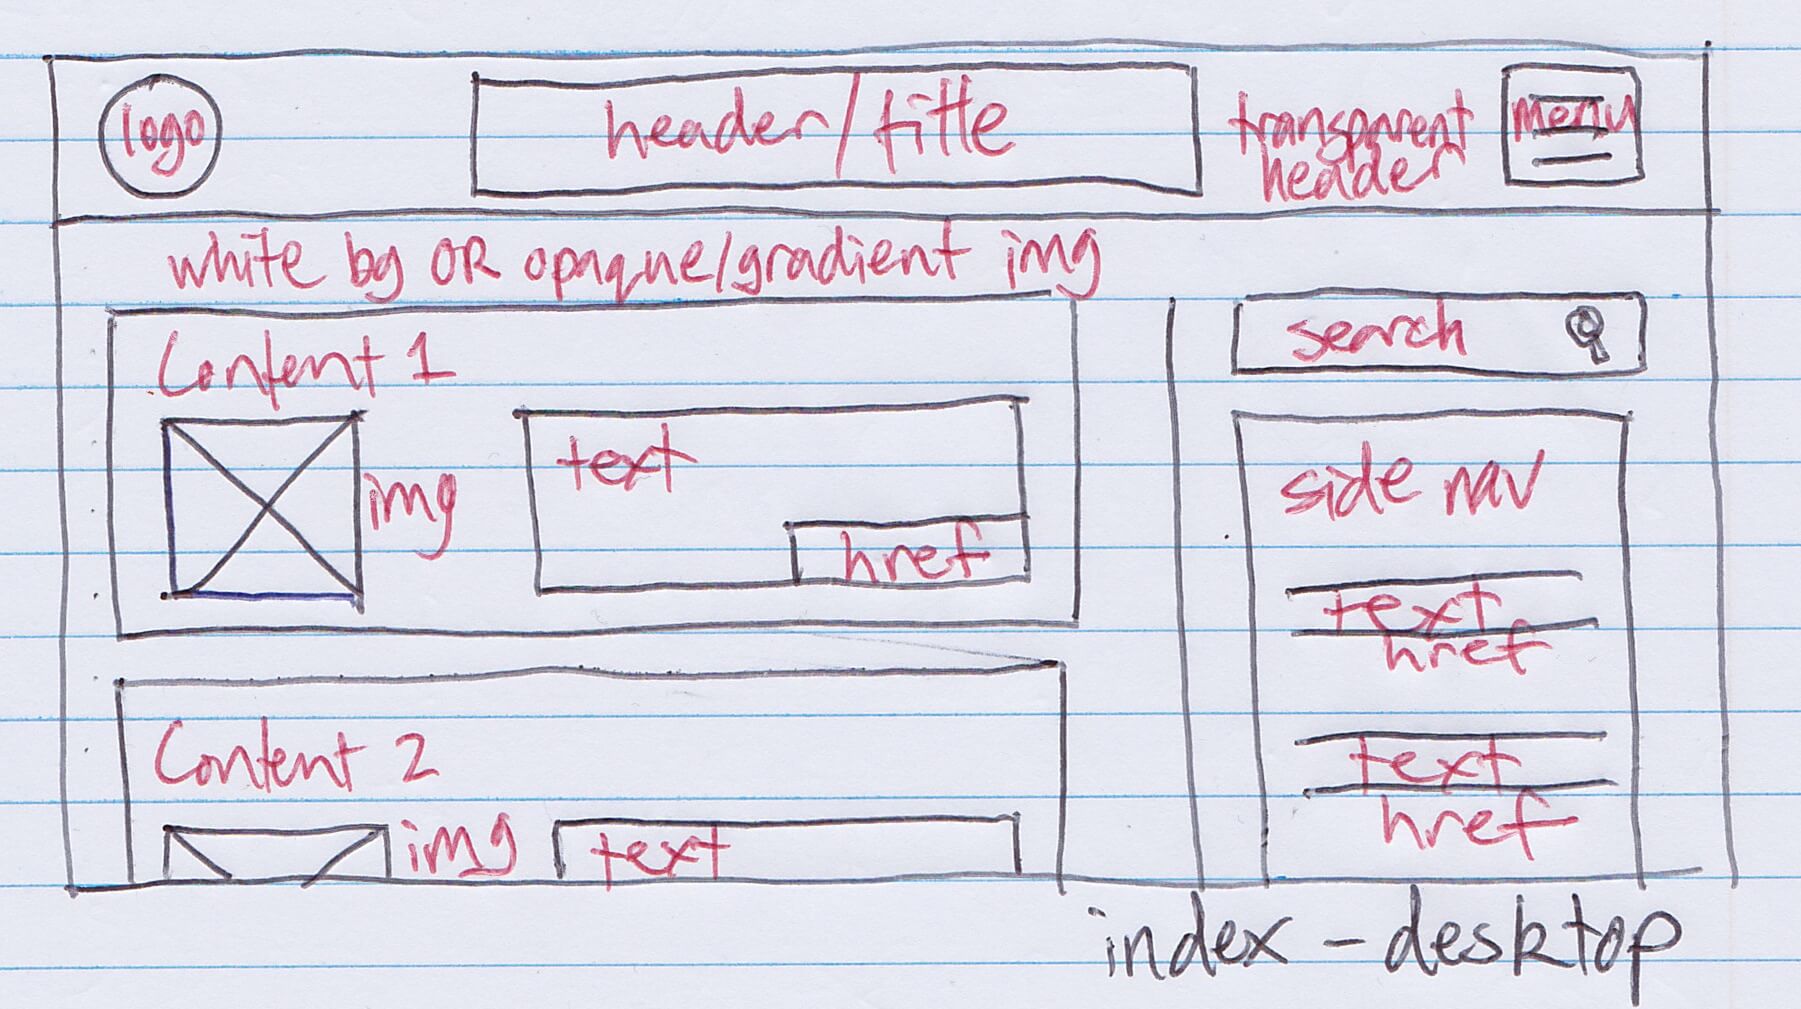 logo
header/title
transparent
header
menu
white bg OR opaque/gradient img
search
Content 1
img
text
href
side nav
text
href
Content 2
img
text
text
href
index - desktop